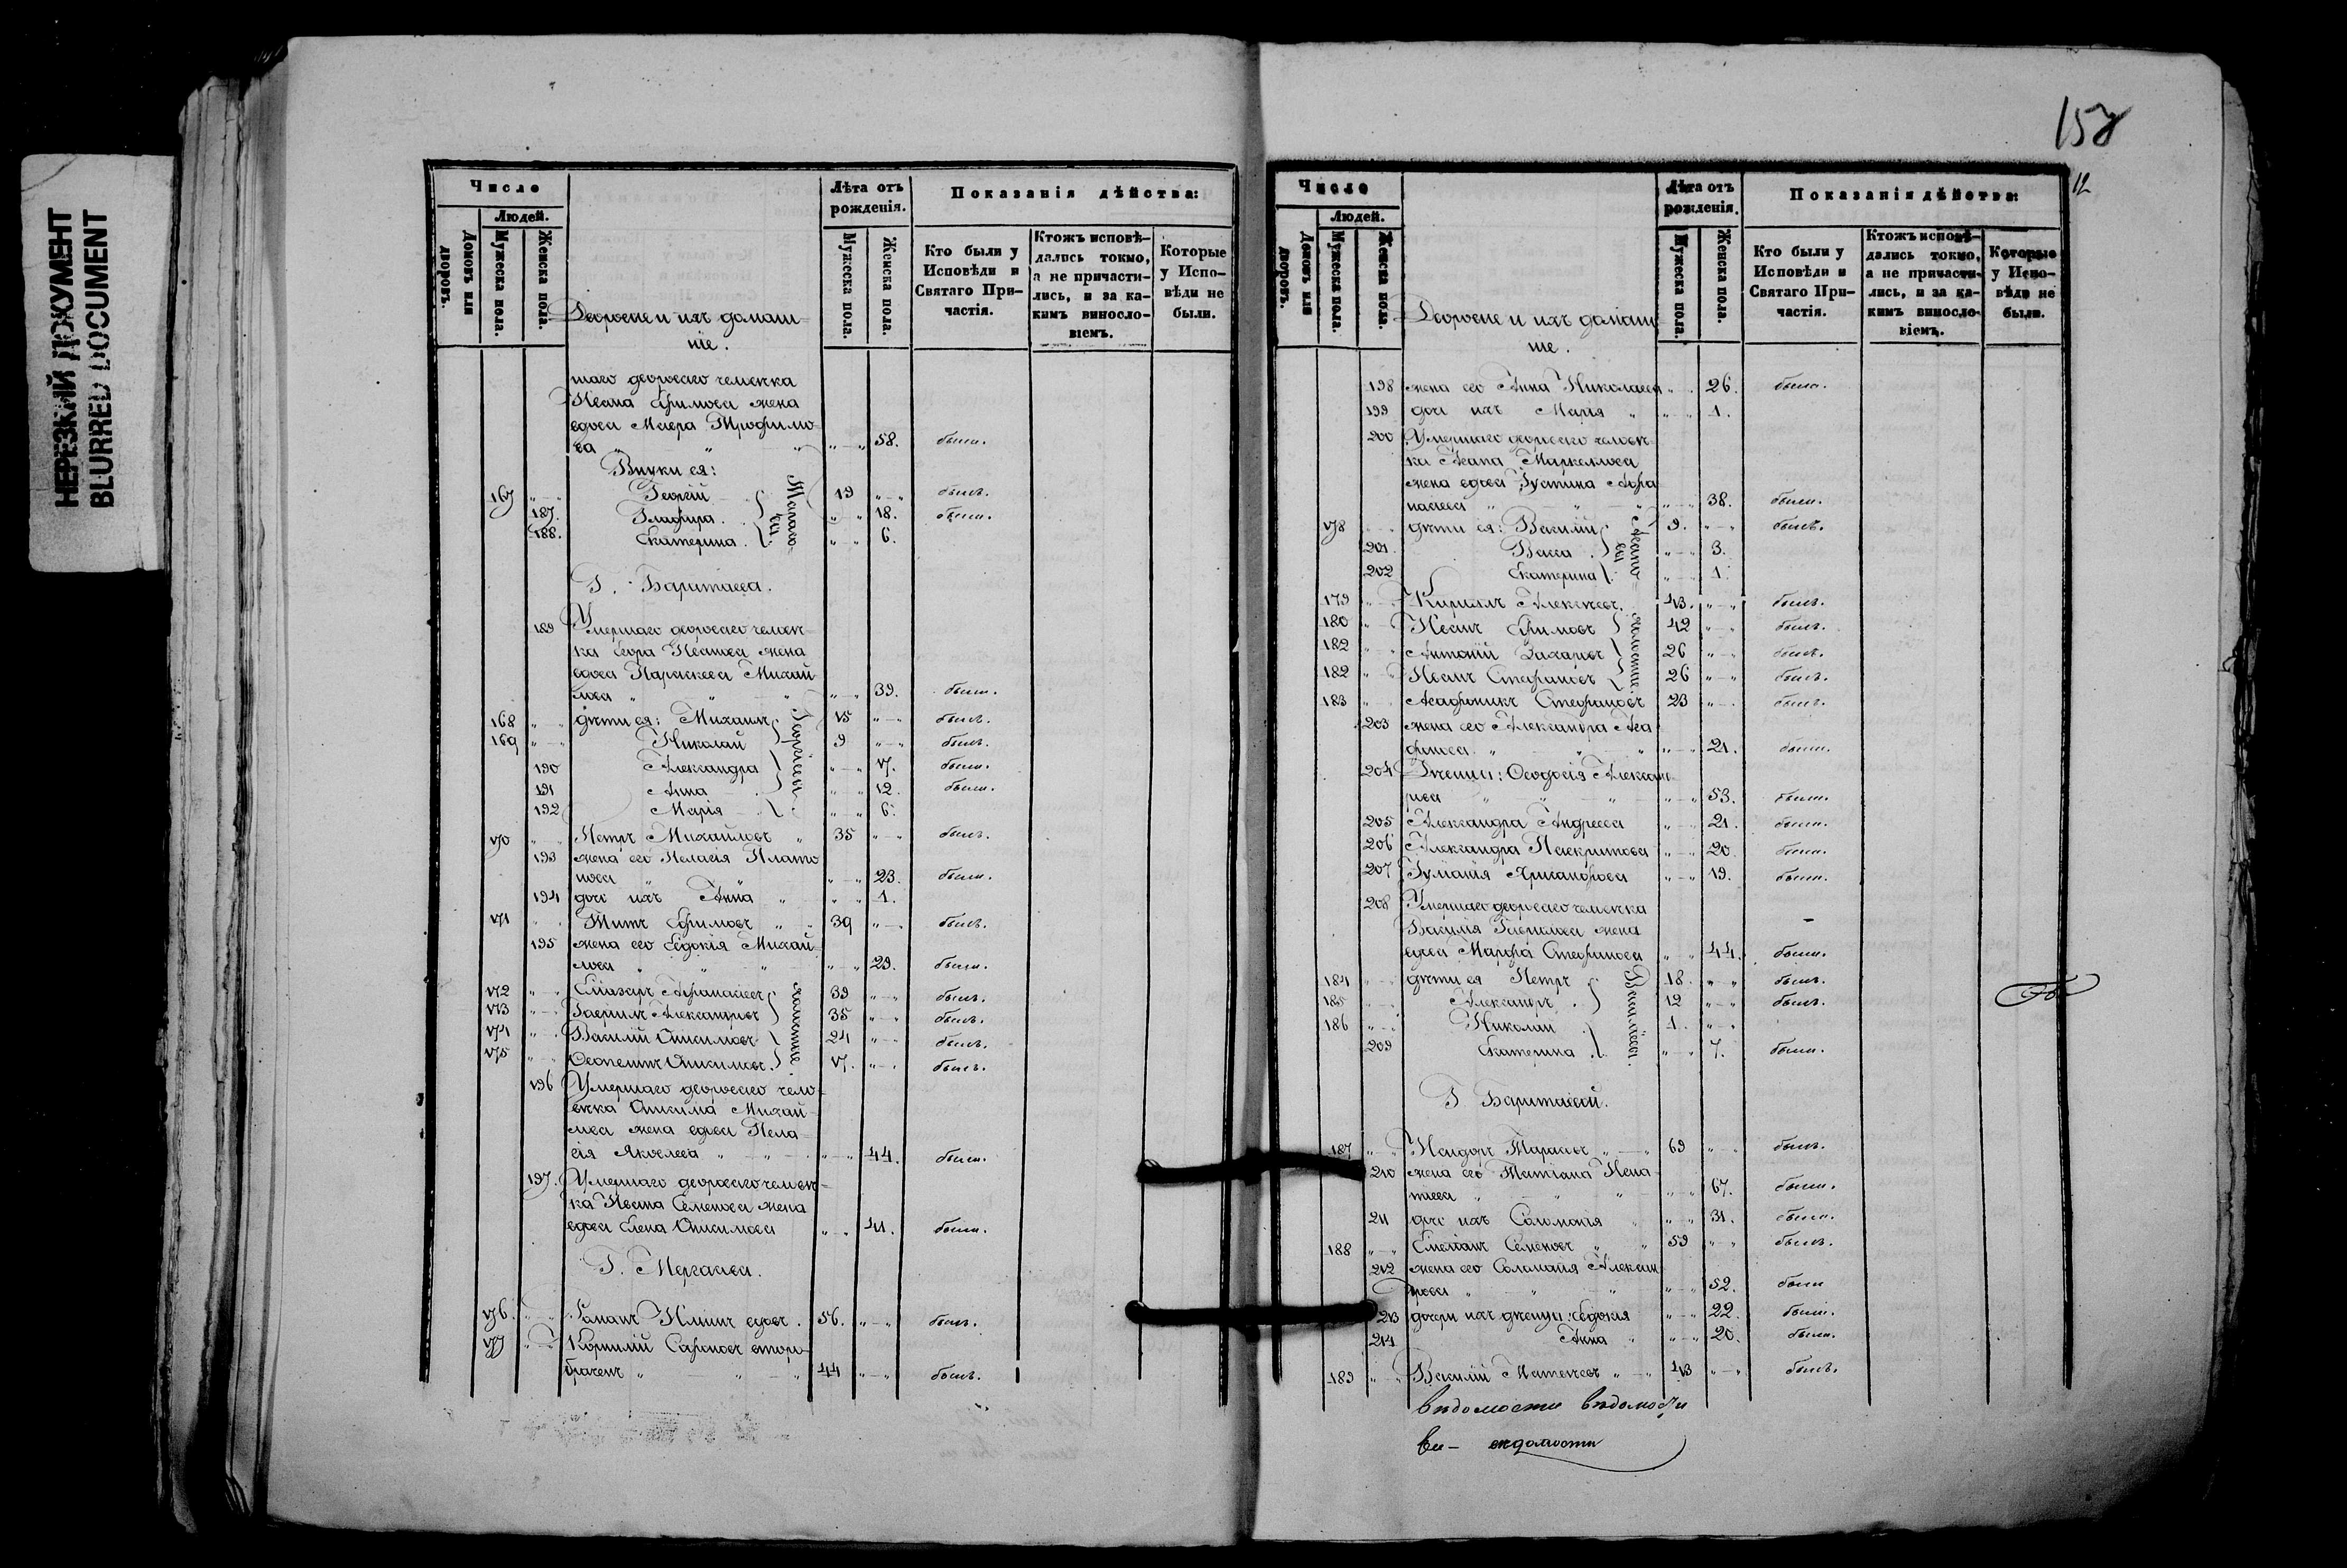 НЕРЕЗКИЙ ДОКУМЕНТ
BLURRED DOCUMENT
Число
Людей.
Домовъ или дворовъ.
Мужеска пола.
Женска пола.
Дворовые и ихъ домаш-
ніе.
Лѣта отъ рожденія.
Мужеска пола.
Женска пола.
Показанія дѣйства:
Кто были у Исповѣди и Святаго При-частія.
Ктожъ исповѣ-дались токмо, а не причасти-лись, и за ка-кимъ винносло-віемъ.
Которые у Испо-вѣди не были.
шаго двороваго человѣка
Ивана Ефимова жена
вдова Мавра Трофимо-
ва " " " — " 58. была.
Внуки ея:
167 " — " Георгій 19 " — " былъ.
187. Глафира " — " 18. была.
188. Екатерина " — " 6.
Г. Баратаева.
189 Умершаго двороваго человѣ-
ка Егора Иванова жена
вдова Параскева Михай-
лова " " " " — " 39. была.
168 " " дѣти ея: Михаилъ 15 " — " былъ.
169 " — " Николай 9 " — " былъ.
Георгіевы
190 Александра " — " 17. была.
191 Анна " — " 12. была.
192 Марія " — " 6.
170 " " Петръ Михайловъ " 35 " — " былъ.
193 жена его Пелагія Плато-
нова " " " — " 23. была.
194 дочь ихъ Анна " " — " 1.
171 " " Титъ Ефимовъ " " 39 " — " былъ.
195 жена его Евдокія Михай-
лова " " " " — " 29. была.
172 " — " Елиазаръ Афанасьевъ 39 " — " былъ.
173 " — " Гавриилъ Александровъ 35 " — " былъ.
174 " — " Василій Онисимовъ 24 " — " былъ.
175 " — " Онисимовъ 17. " — " былъ.
холостые
196 Умершаго двороваго чело-
вѣка Онисима Михай-
лова жена вдова Пела-
гія Яковлева " — " — " — " 44. была.
197. Умершаго двороваго человѣ-
ка Ивана Семенова жена
вдова Елена Онисимова " — " 41. была.
Г.
176. " " Романъ Ильинъ вдовъ. 56. " — " былъ.
177 " — " Корнилій второ-
браченъ " " " 44 " — " былъ.
158
12
Число
Людей.
Домовъ или дворовъ.
Мужеска пола.
Женска пола.
Дворовые и ихъ домаш-
ніе.
Лѣта отъ рожденія.
Мужеска пола.
Женска пола.
Показанія дѣйства:
Кто были у Исповѣди и Святаго При-частія.
Ктожъ исповѣ-дались токмо, а не причасти-лись, и за ка-кимъ винносло-віемъ.
Которые у Испо-вѣди не были.
198 жена его Анна Николаева " — 26. была.
199 дочь ихъ Марія " " — " 1.
200 Умершаго двороваго человѣ-
ка Маркелова
жена вдова Устина Афа-
насьева " " " " — " 38. была.
178 дѣти ея: Василій 9. " — " былъ.
201 Васса " — " 3.
202 Екатерина " — " 1.
179 " — Кириллъ Алексѣевъ. 43. " — " былъ.
180 " — Иванъ Ефимовъ 42 " — " былъ.
182 " " Антоній Захаровъ 26 " — " былъ.
182 " " Иванъ Стефановъ 26 " — " былъ.
холостые.
183 " Агафоникъ Стефановъ 23 " — " былъ.
203 жена его Александра Ага-
фонова " " " " — " 21. была.
204 Дѣвицы: Ѳеодосія Алексан-
рова " " " " — " 53. была.
205 Александра Андреева " — " 21. была.
206 Александра " — " 20 была.
207 " — " 19. была.
208 Умершаго двороваго человѣка
Василія Гаврилова жена
вдова Марфа Стефанова " " 44. была.
184 " — " дѣти ея Петръ 18. " " былъ.
185 " — " Александръ 12 " — " былъ.
186 " — " Николай 1. " — "
209 Екатерина " — " 7. была.
Васильевы.
Г. Баратаевой.
187 " — " Тарасовъ " — " 69 " — " былъ.
210 жена его Татіана Игна-
тіева " " " " — " 67. была.
211 дочь ихъ Соломонія " — " 31. была.
188 " — " Емеліанъ Семеновъ " " 59 " — " былъ.
212 жена его Соломонія Алексан-
дрова " " " " — " 52. была
213 дочери ихъ дѣвицы: Евдокія " — " 22. была.
214 Анна " " — " 20. была.
189 " Василій Матвѣевъ " — " 43 " — " былъ.
вѣдомости вѣдомости
ве — вѣдомости